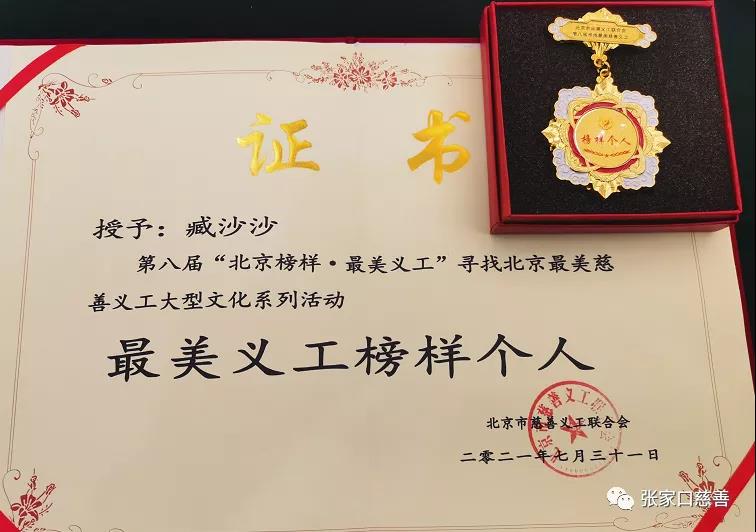 证书
授予：臧沙沙
第八届“北京榜样·最美义工”寻找北京最美慈
善义工大型文化系列活动
最美义工榜样个人
北京市慈善义工联合会
二零二一年七月三十一日
北京市慈善义工联合会
榜样个人
张家口慈善